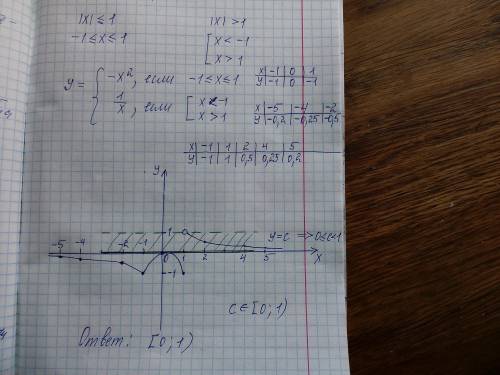 |x| ≤ 1    |x| > 1
-1 ≤ x ≤ 1    [ x < -1
x > 1
y = { -x², если -1 ≤ x ≤ 1
1/x, если [ x < -1
x > 1
x | -1 | 0 | 1
y | -1 | 0 | -1
x | -5 | -4 | -2
y | -0,2 | -0,25 | -0,5
x | -1 | 1 | 2 | 4 | 5
y | -1 | 1 | 0,5 | 0,25 | 0,2
y
1
y=c => 0≤c<1
-5 -4 -2 -1 0 1 2 4 5 x
-1
c ∈ [0; 1)
Ответ: [0; 1)